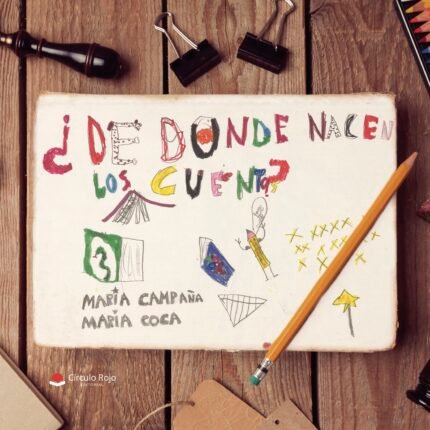 ¿DE DONDE NACEN
LOS CUENTOS?
MARÍA CAMPAÑA
MARÍA COCA
Círculo Rojo
EDITORIAL